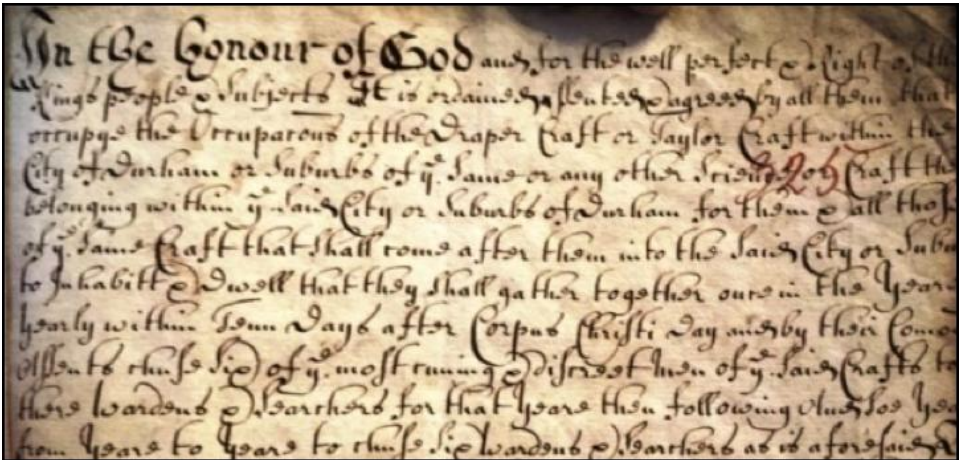 In the honour of God and for the well perfect & Right of the
Kings people & Subjects It is ordained assented & agreed by all them that
occupye the Occupacons of the Draper Craft or Taylor Craft within the
City of Durham or Suburbs of ye. Same or any other Science or Craft the
325
belonging within ye Said City or Suburbs of Durham for them & all those
of ye. Same Craft that shall come after them into the Said City or Subu
to Inhabitt & Dwell that they shall gather together once in the Yeare
Yearly within Tenn Days after Corpus Christi Day and by their Comon
Assents chuse Six of ye. most cuning & discreet Men of ye. Said Crafts to
there Wardens & Searchers for that Yeare then following And soe
from Yeare to Yeare to chuse Six Wardens & Searchers as is aforesaid